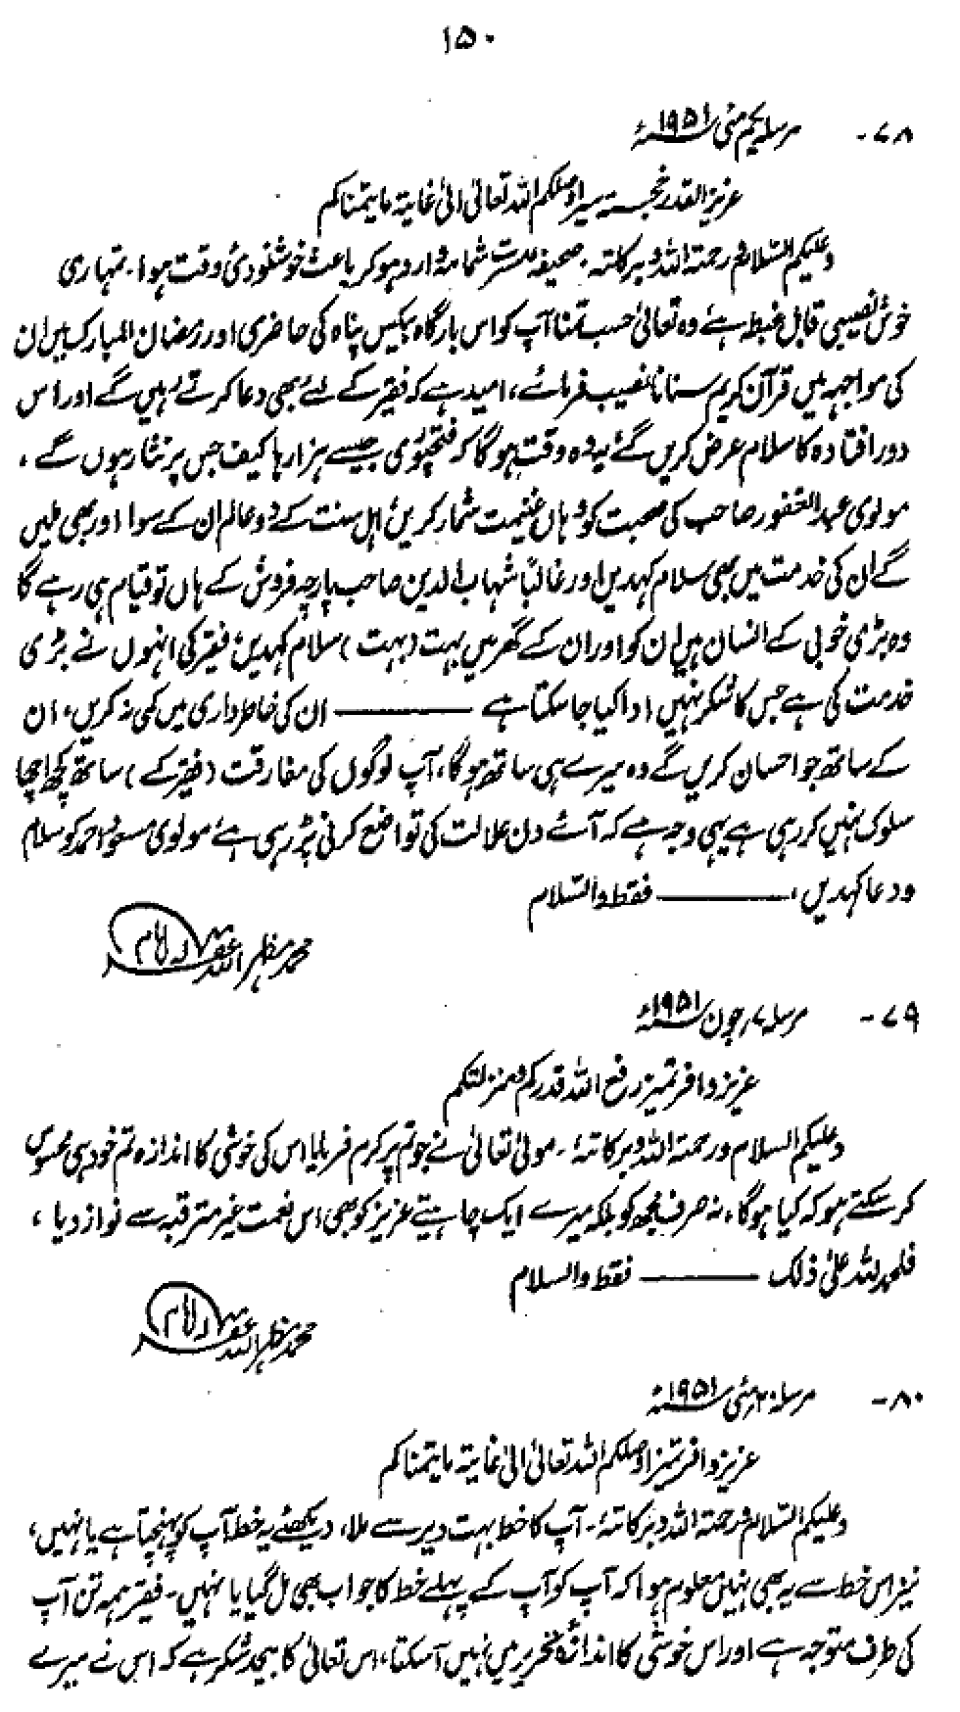 ۱۵۰
۷۸- مرسلہ یکم مئی ۱۹۵۱ء
عزیز القدر خجستہ سیر اوصلکم اللہ تعالیٰ الیٰ غایۃ ما یتمناکم
وعلیکم السّلام ورحمۃ اللہ وبرکاتہ۔ صحیفہ مسرت شمامہ وارد ہو کر باعث خوشنودئ وقت ہوا۔ تمہاری
خوش نصیبی قابل غبطہ ہے وہ تعالیٰ حسب تمنا آپ کو اس بارگاہ بیکس پناہ کی حاضری اور رمضان المبارک میں ان
کی مواجہہ میں قرآن کریم سنانا نصیب فرمائے، امید ہے کہ فقیر کے لئے بھی دعا کرتے رہیں گے اور اس
دور افتادہ کا سلام عرض کریں گے یہ وہ وقت ہوگا کہ فتحپوری جیسے ہزار ہا کیف جس پر نثار ہوں گے،
مولوی عبدالغفور صاحب کی صحبت کو وہاں غنیمت شمار کریں اہل سنت کے دو عالم ان کے سوا اور بھی ملیں
گے ان کی خدمت میں بھی سلام کہدیں اور غالباً شہاب الدین صاحب پارچہ فروش کے ہاں تو قیام ہی رہے گا
وہ بڑی خوبی کے انسان ہیں ان کو اور ان کے گھر میں بہت (بہت) سلام کہدیں فقیر کی انہوں نے بڑی
خدمت کی ہے جس کا شکر نہیں ادا کیا جا سکتا ہے ——— ان کی خاطر داری میں کمی نہ کریں، ان
کے ساتھ جو احسان کریں گے وہ میرے ہی ساتھ ہوگا، آپ لوگوں کی مفارقت (فقیر کے) ساتھ کچھ اچھا
سلوک نہیں کر رہی ہے یہی وجہ ہے کہ آئے دن علالت کی تواضع کرنی پڑ رہی ہے مولوی مسعود احمد کو سلام
ودعا کہدیں، ——— فقط والسّلام
محمد مظہر اللہ غفرلہ
۷۹- مرسلہ ۷ر جون ۱۹۵۱ء
عزیز وافر تمیز رفع اللہ قدرکم ومنزلتکم
وعلیکم السلام ورحمۃ اللہ وبرکاتہ۔ مولیٰ تعالیٰ نے جو تم پر کرم فرمایا اس کی خوشی کا اندازہ تم خود ہی محسوس
کر سکتے ہو کہ کیا ہوگا، نہ صرف مجھ کو بلکہ میرے ایک چاہیتے عزیز کو بھی اس نعمت غیر مترقبہ سے نواز دیا،
فلحمد للہ علیٰ ذلک ——— فقط والسلام
محمد مظہر اللہ غفرلہ
۸۰- مرسلہ ۲۰ر مئی ۱۹۵۱ء
عزیز وافر تمیز اوصلکم اللہ تعالیٰ الیٰ غایۃ ما یتمناکم
وعلیکم السّلام ورحمۃ اللہ وبرکاتہ۔ آپ کا خط بہت دیر سے ملا، دیکھئے یہ خط آپ کو پہنچتا ہے یا نہیں،
نیز اس خط سے یہ بھی نہیں معلوم ہوا کہ آپ کو آپ کے پہلے خط کا جواب بھی مل گیا یا نہیں۔ فقیر ہمہ تن آپ
کی طرف متوجہ ہے اور اس خوشی کا اندازہ تحریر میں نہیں آسکتا، اس تعالیٰ کا بیحد شکر ہے کہ اس نے میرے